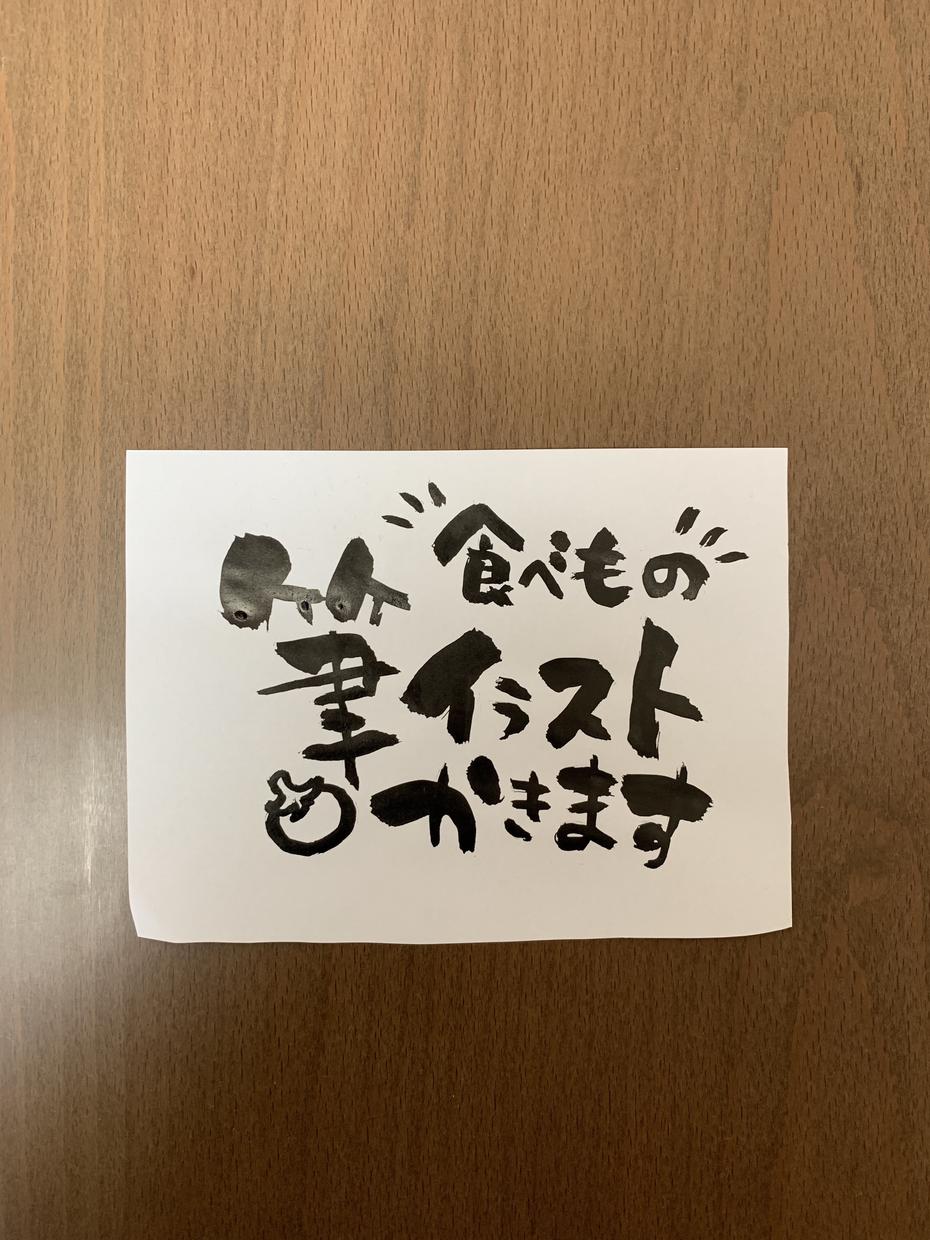 食べもの
筆イラスト
かきます